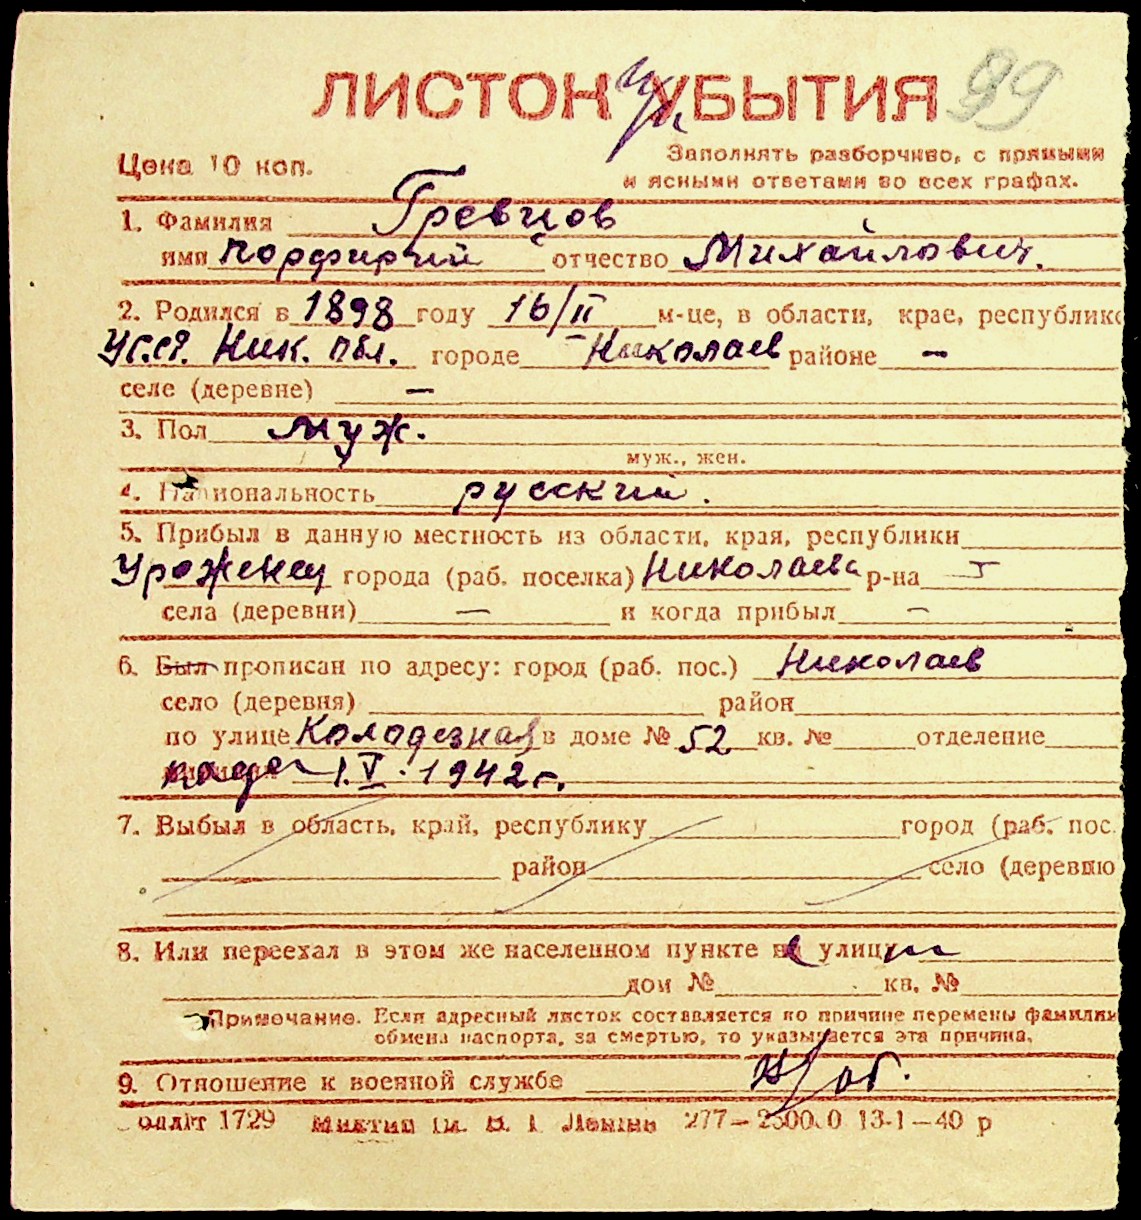 ЛИСТОК УБЫТИЯ 99
Цена 10 коп. Заполнять разборчиво, с прямыми
и ясными ответами во всех графах.
1. Фамилия Гревцов
имя Порфирий отчество Михайлович.
2. Родился в 1898 году 16/II м-це, в области, крае, республике
Ник. обл. городе Николаев районе —
селе (деревне) —
3. Пол муж.
муж., жен.
4. Национальность русский.
5. Прибыл в данную местность из области, края, республики
Уроженец города (раб. поселка) Николаева р-на
села (деревни) — и когда прибыл —
6. Был прописан по адресу: город (раб. пос.) Николаев
село (деревня) район
по улице Колодезная в доме № 52 кв. № отделение
1.V.1942 г.
7. Выбыл в область, край, республику город (раб. пос.
район село (деревню
8. Или переехал в этом же населенном пункте на улицу
дом № кв. №
Примечание. Если адресный листок составляется по причине перемены фамилии
обмена паспорта, за смертью, то указывается эта причина.
9. Отношение к военной службе н/об.
1729 Ленина 277— 13-1—40 р